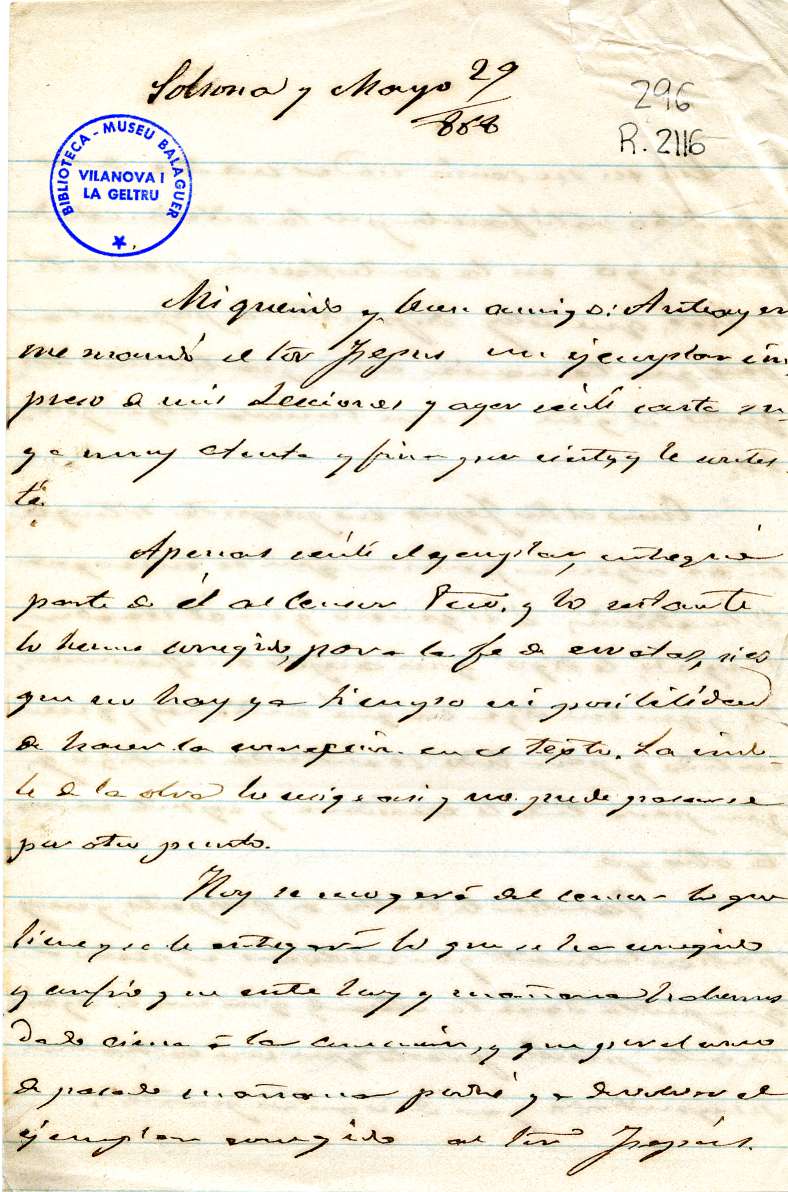 Solsona y Mayo 29
/868
296
R. 2116
BIBLIOTECA - MUSEU BALAGUER
VILANOVA I
LA GELTRU
Mi querido y buen amigo: Anteayer
me mandó el Sor Jepús un ejemplar im-
preso de mis Lecciones y ayer recibí carta su-
ya muy atenta y fina que y le contes-
té.
Apenas recibí el ejemplar, entregué
parte de él al Censor y lo restante
lo hemos corregido, para la fe de erratas, rico
que no hay ya tiempo ni posibilidad
de hacer la corrección en el texto. La índo-
le de la obra lo exige asi y no puede pasarse
por otro punto.
Hoy se recogerá del censor lo que
tiene y se le entregará lo que se ha corregido
y confío que entre hoy y mañana habremos
dado cima á la corrección, y que por el correo
de pasado mañana podré ya devolver el
ejemplar corregido al Sor Jepús.